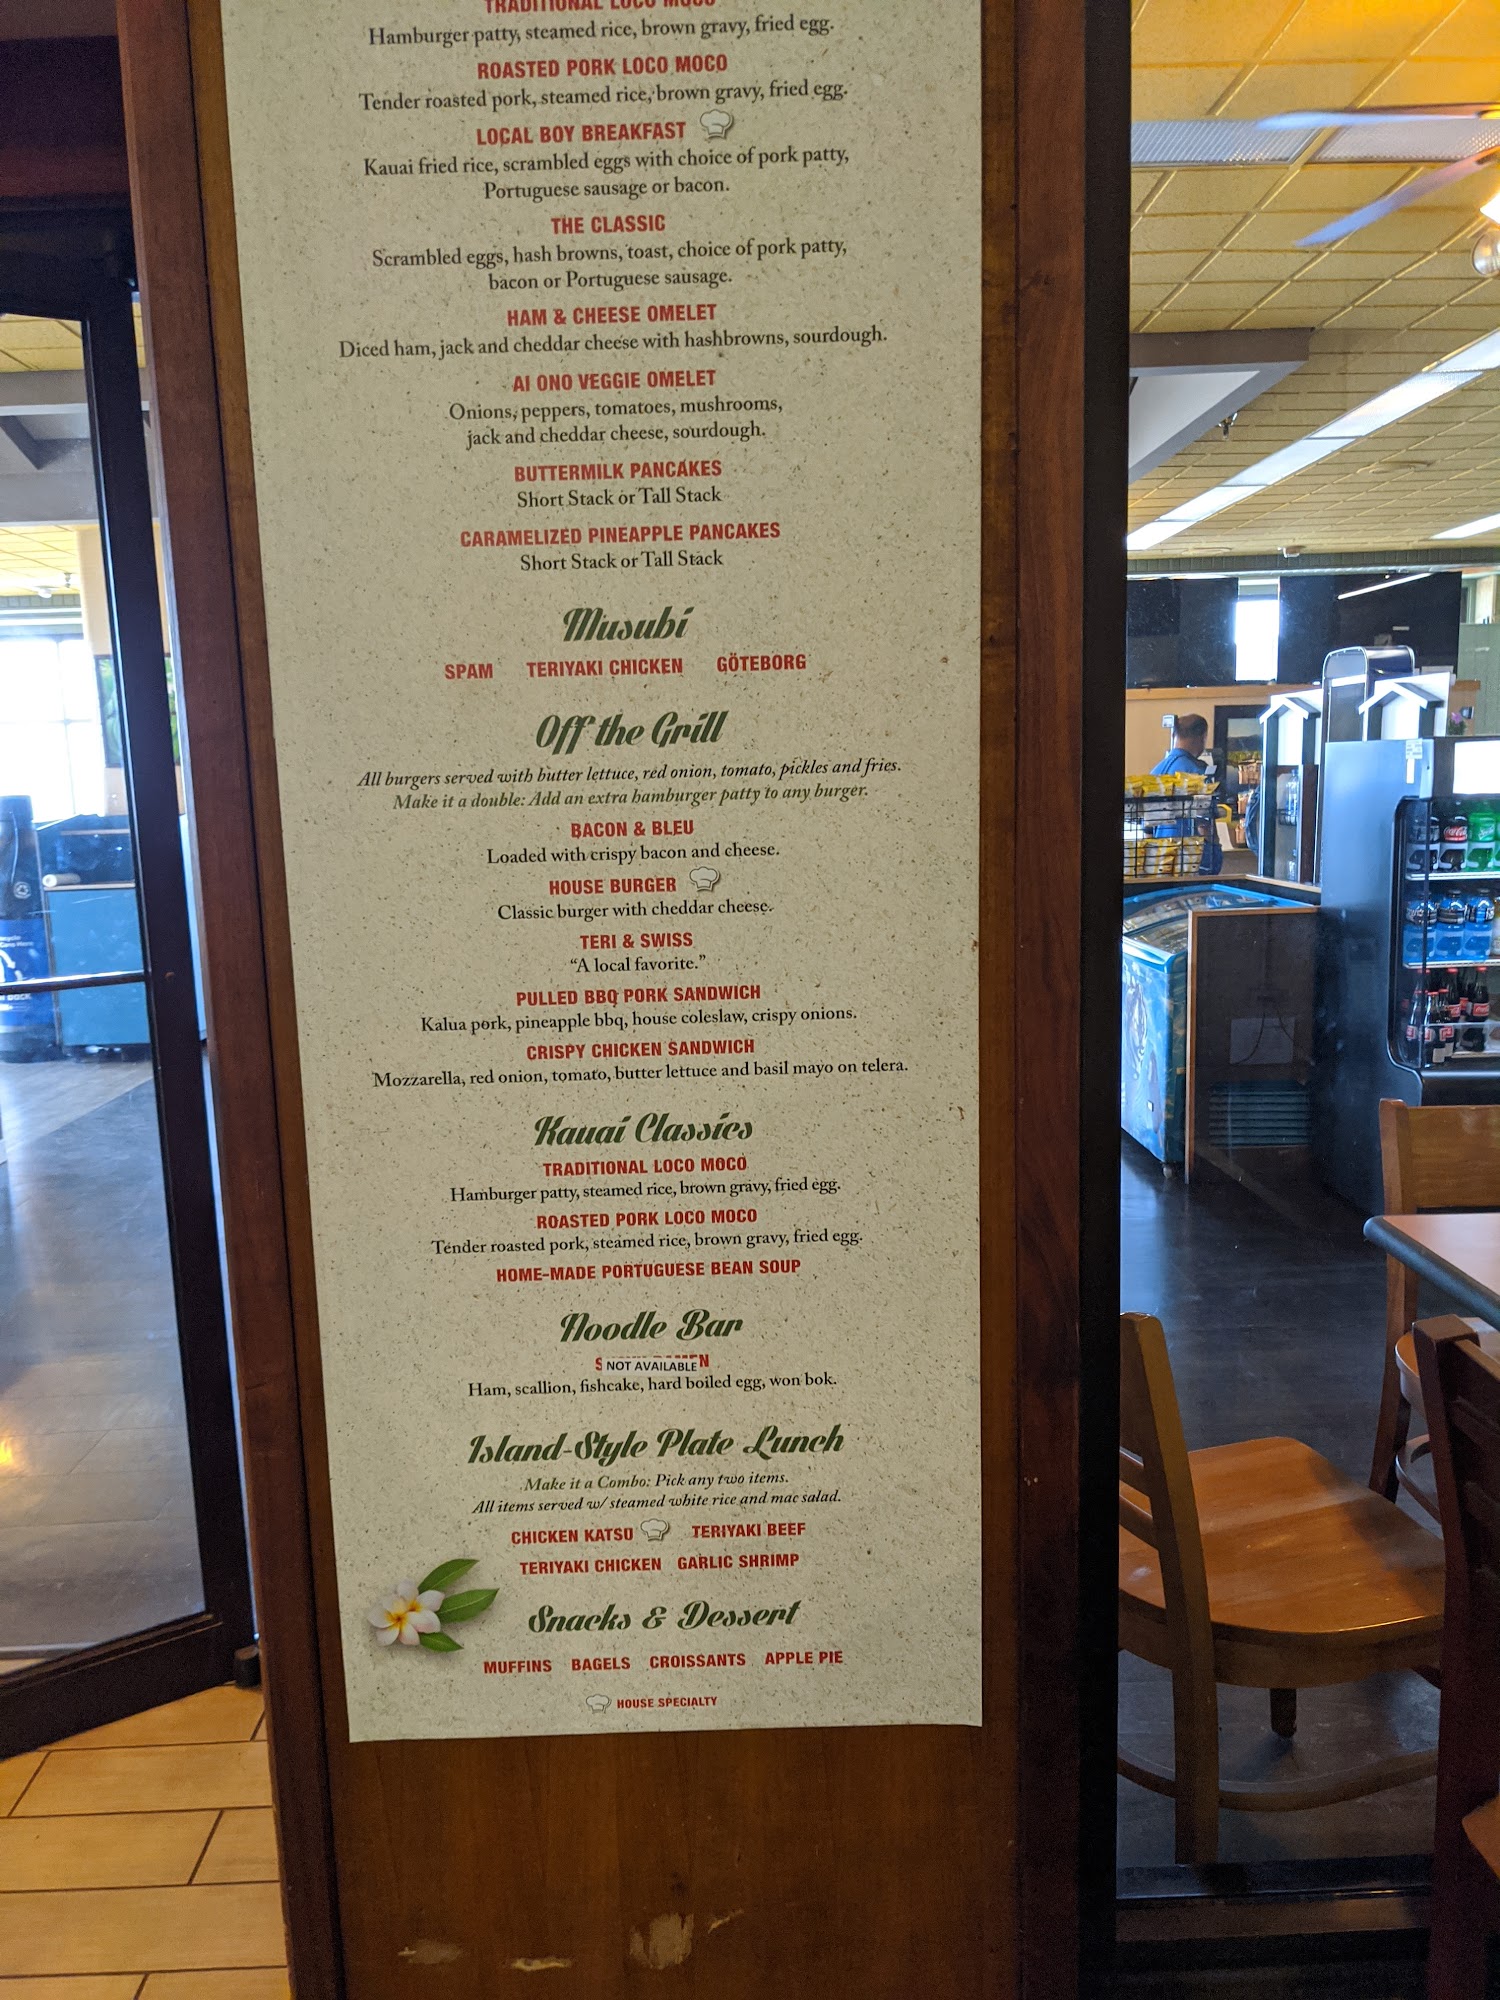 TRADITIONAL LOCO MOCO
Hamburger patty, steamed rice, brown gravy, fried egg.
ROASTED PORK LOCO MOCO
Tender roasted pork, steamed rice, brown gravy, fried egg.
LOCAL BOY BREAKFAST
Kauai fried rice, scrambled eggs with choice of pork patty,
Portuguese sausage or bacon.
THE CLASSIC
Scrambled eggs, hash browns, toast, choice of pork patty,
bacon or Portuguese sausage.
HAM & CHEESE OMELET
Diced ham, jack and cheddar cheese with hashbrowns, sourdough.
AI ONO VEGGIE OMELET
Onions, peppers, tomatoes, mushrooms,
jack and cheddar cheese, sourdough.
BUTTERMILK PANCAKES
Short Stack or Tall Stack
CARAMELIZED PINEAPPLE PANCAKES
Short Stack or Tall Stack
Musubi
SPAM TERIYAKI CHICKEN GÖTEBORG
Off the Grill
All burgers served with butter lettuce, red onion, tomato, pickles and fries.
Make it a double: Add an extra hamburger patty to any burger.
BACON & BLEU
Loaded with crispy bacon and cheese.
HOUSE BURGER
Classic burger with cheddar cheese.
TERI & SWISS
“A local favorite.”
PULLED BBQ PORK SANDWICH
Kalua pork, pineapple bbq, house coleslaw, crispy onions.
CRISPY CHICKEN SANDWICH
Mozzarella, red onion, tomato, butter lettuce and basil mayo on telera.
Kauai Classics
TRADITIONAL LOCO MOCO
Hamburger patty, steamed rice, brown gravy, fried egg.
ROASTED PORK LOCO MOCO
Tender roasted pork, steamed rice, brown gravy, fried egg.
HOME-MADE PORTUGUESE BEAN SOUP
Noodle Bar
NOT AVAILABLE
Ham, scallion, fishcake, hard boiled egg, won bok.
Island-Style Plate Lunch
Make it a Combo: Pick any two items.
All items served w/ steamed white rice and mac salad.
CHICKEN KATSU TERIYAKI BEEF
TERIYAKI CHICKEN GARLIC SHRIMP
Snacks & Dessert
MUFFINS BAGELS CROISSANTS APPLE PIE
HOUSE SPECIALTY